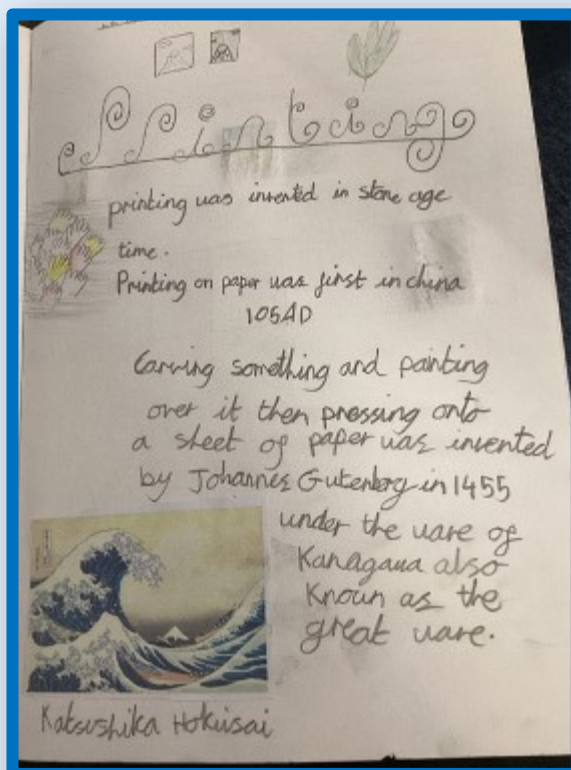 Printing
printing was invented in stone age
time.
Printing on paper was first in china
105AD
Carving something and painting
over it then pressing onto
a sheet of paper was invented
by Johannes Gutenberg in 1455
under the wave of
Kanagawa also
Known as the
great wave.
Katsushika Hokusai